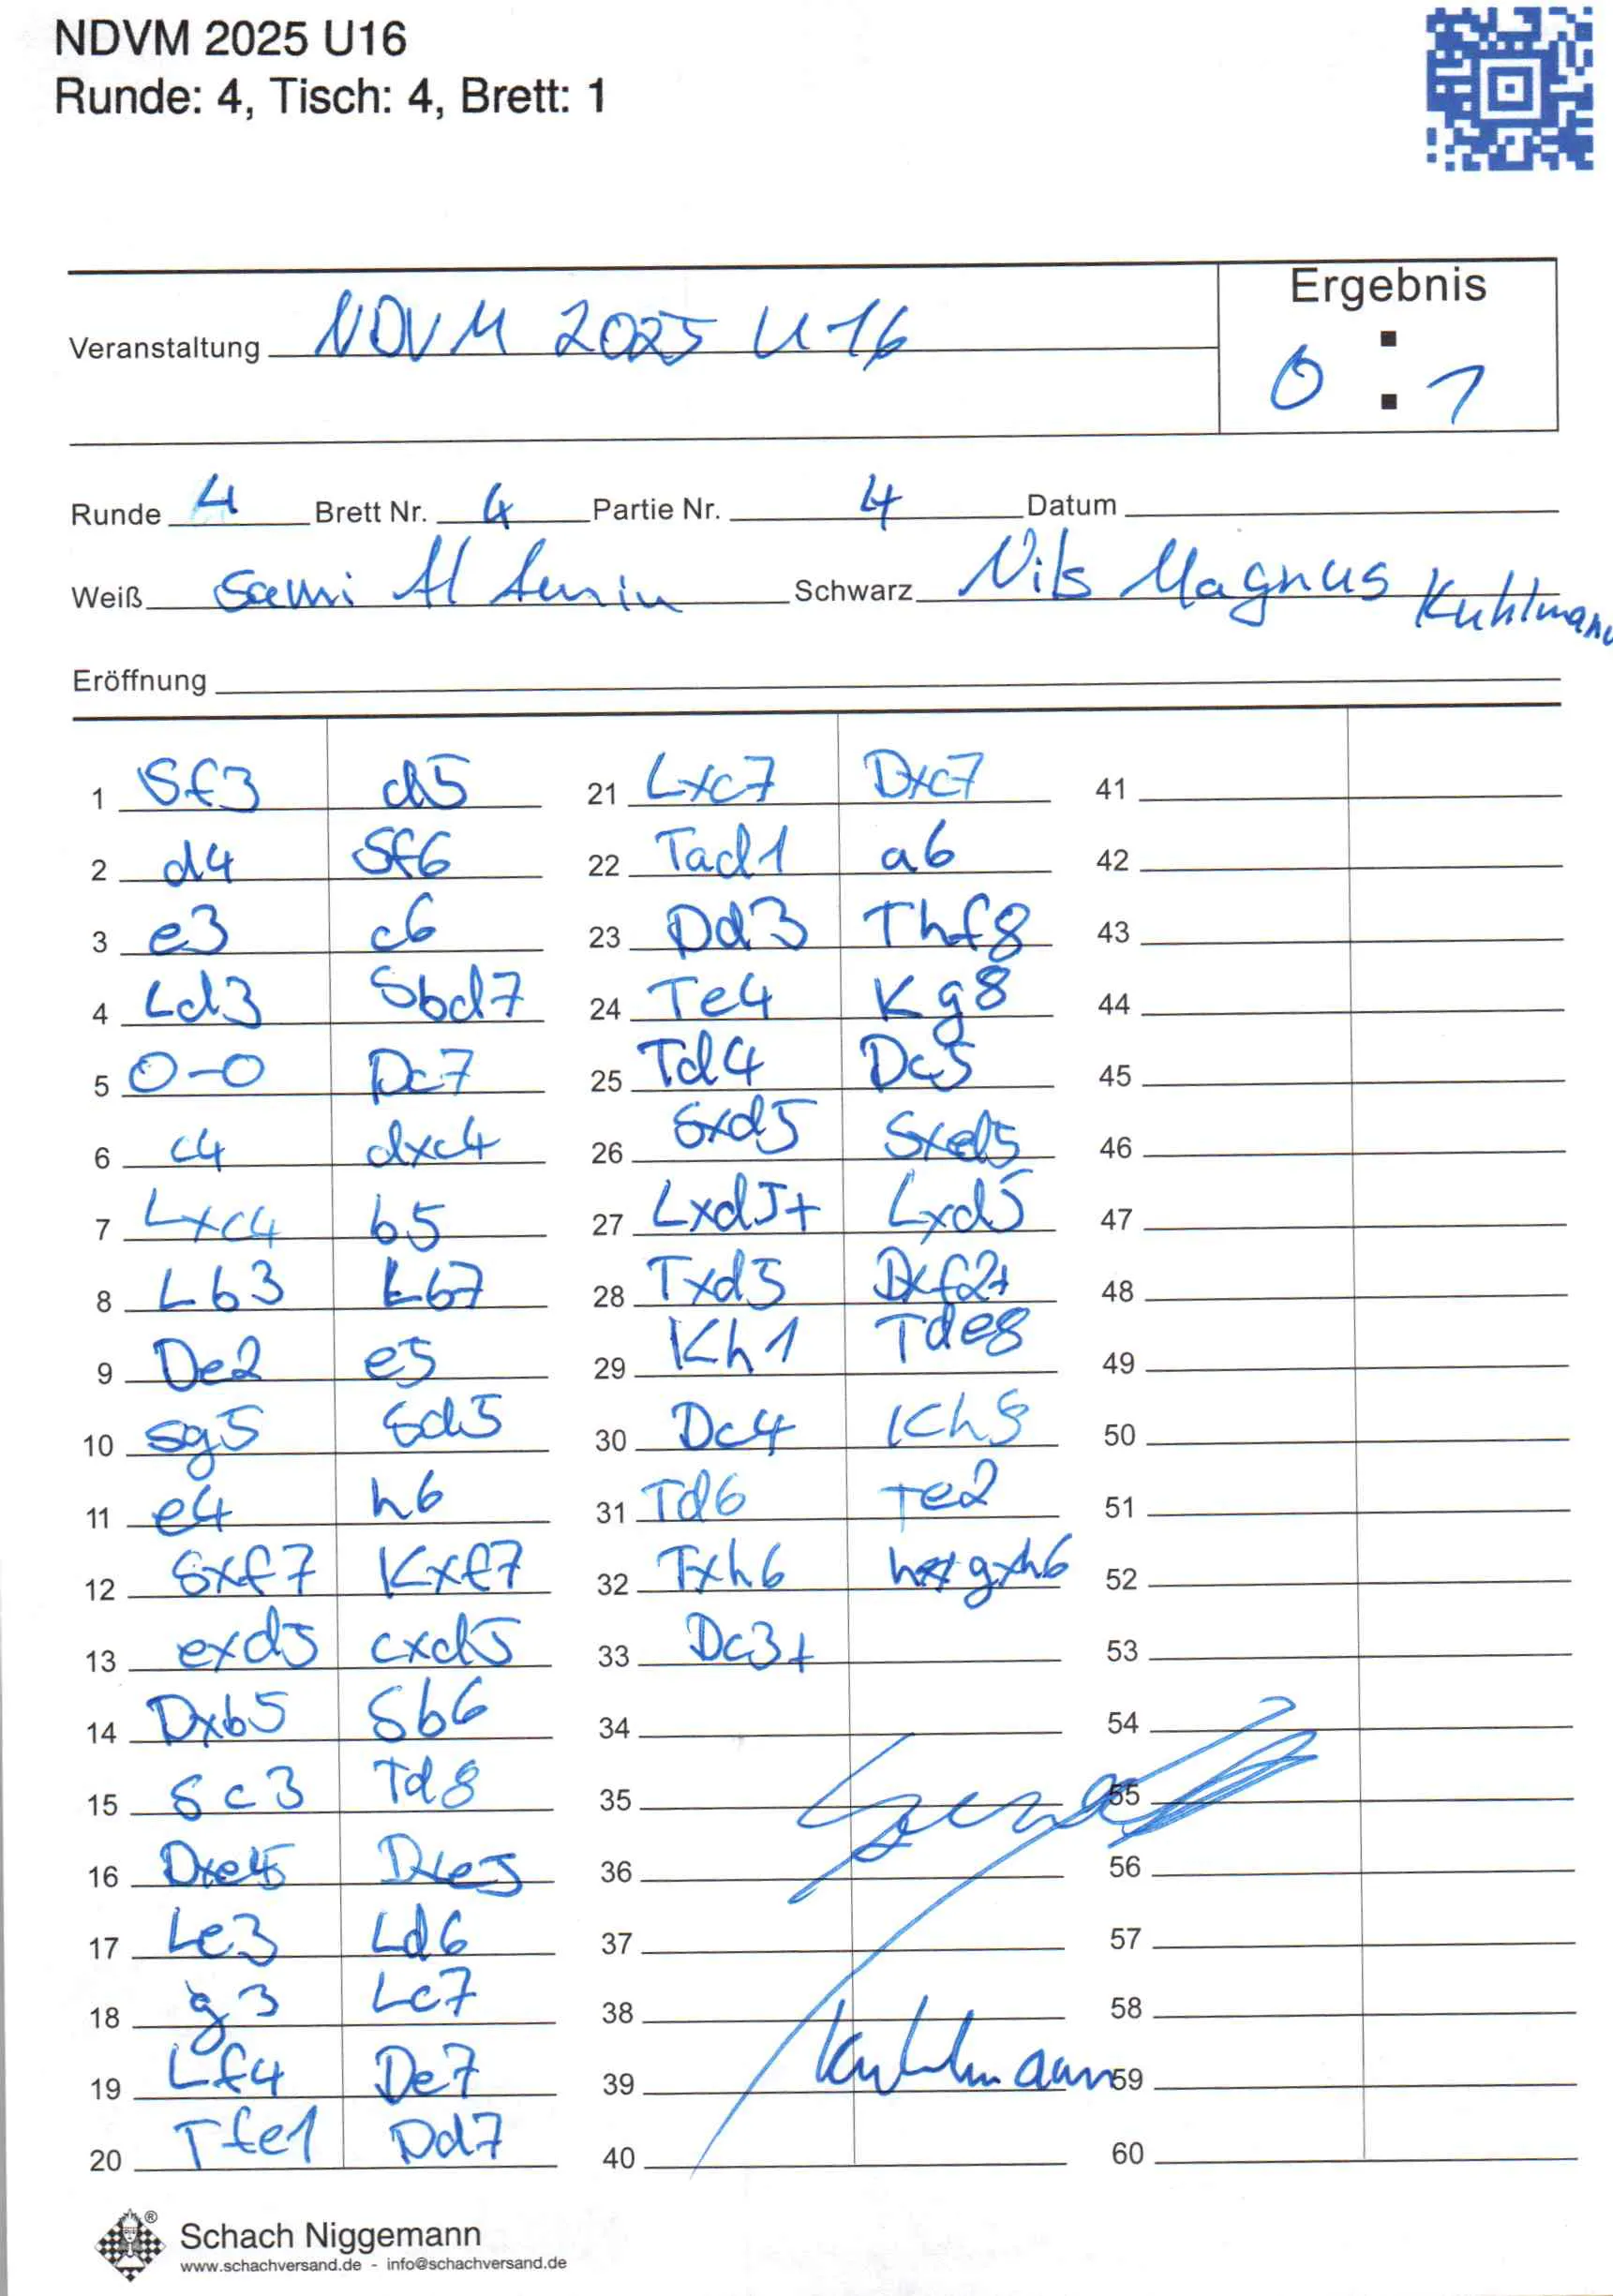 NDVM 2025 U16
Runde: 4, Tisch: 4, Brett: 1
Ergebnis
Veranstaltung NDVM 2025 U16
0 : 1
Runde 4 Brett Nr. 4 Partie Nr. 4 Datum
Weiß Sami Al Schwarz Nils Magnus Kuhlmann
Eröffnung
1 Sf3 d5 21 Lxc7 Dxc7 41
2 d4 Sf6 22 Tad1 a6 42
3 e3 c6 23 Dd3 Thf8 43
4 Ld3 Sbd7 24 Te4 Kg8 44
5 0-0 Dc7 25 Td4 Dc5 45
6 c4 dxc4 26 Sxd5 Sxd5 46
7 Lxc4 b5 27 Lxd5+ Lxd5 47
8 Lb3 Lb7 28 Txd5 Dxf2+ 48
9 De2 e5 29 Kh1 Tde8 49
10 Sg5 Sd5 30 Dc4 Kh8 50
11 e4 h6 31 Td6 Te2 51
12 Sxf7 Kxf7 32 Txh6 gxh6 52
13 exd5 cxd5 33 Dc3+ 53
14 Dxb5 Sb6 34 54
15 Sc3 Td8 35 55
16 Dxe5 Dxe5 36 56
17 Le3 Ld6 37 57
18 g3 Lc7 38 58
19 Lf4 De7 39 Kuhlmann 59
20 Tfe1 Dd7 40 60
Schach Niggemann
www.schachversand.de - info@schachversand.de